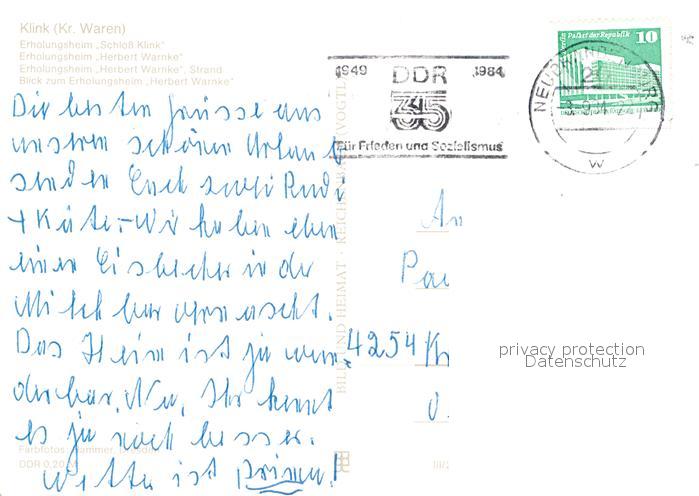 Klink (Kr. Waren)
Erholungsheim „Schloß Klink"
Erholungsheim „Herbert Warnke"
Erholungsheim „Herbert Warnke", Strand
Blick zum Erholungsheim „Herbert Warnke"
Die besten Grüsse aus
unserem schönen Urlaub
senden Euch zwei Rudi
+ Käte. Wir haben eben
einen Eisbecher in der
Milchbar vernascht.
Das Heim ist ja wun-
derbar. Na, Ihr kennt
es ja noch besser.
Wetter ist prima!
Farbfotos: Hammer, Dresden
DDR 0,20 M
BILD UND HEIMAT · REICHENBACH (VOGTL
1949 DDR 1984
35
Für Frieden und Sozialismus
Palast der Republik 10
NEUBRANDENBURG
2
w
An
Pau
4254 Kr
O.
privacy protection
Datenschutz